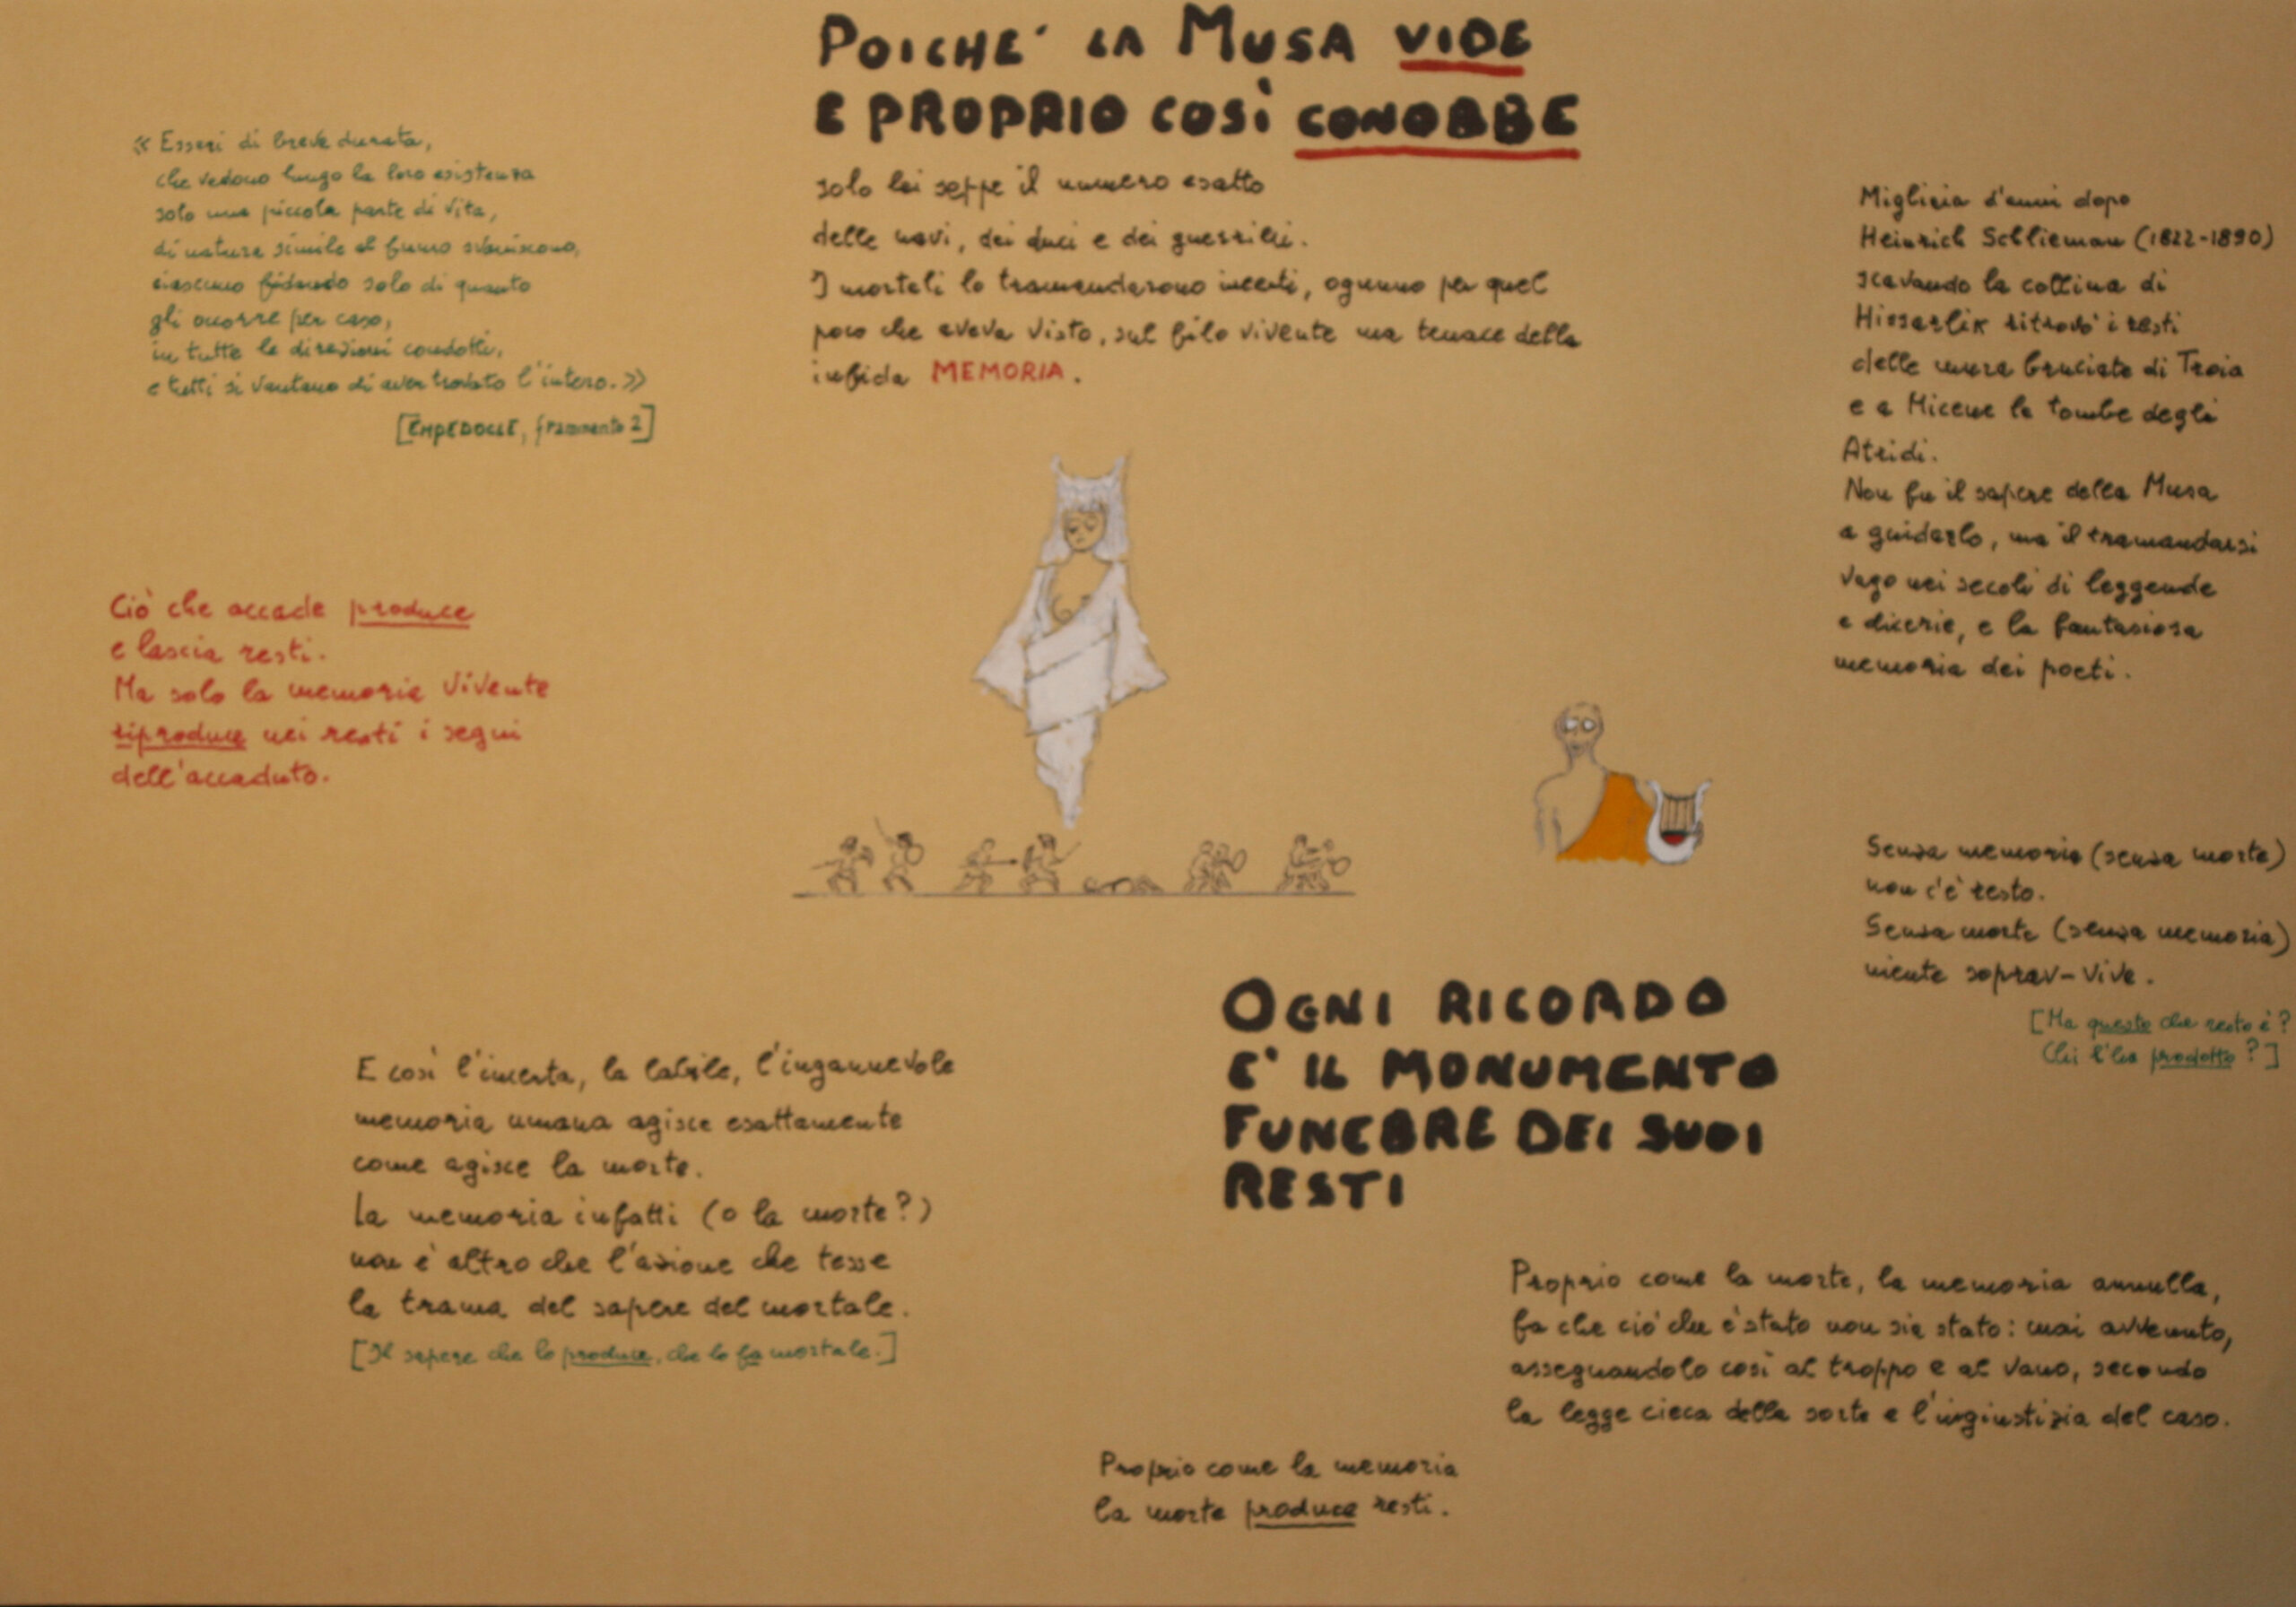 POICHE' LA MUSA VIDE
E PROPRIO COSÌ CONOBBE
solo lei seppe il numero esatto
delle navi, dei duci e dei guerrieri.
I mortali lo tramandarono incerti, ognuno per quel
poco che aveva visto, sul filo vivente ma tenace della
infida MEMORIA.
« Esseri di breve durata,
che vedono lungo la loro esistenza
solo una piccola parte di vita,
di natura simile al fumo svaniscono,
ciascuno fidando solo di quanto
gli occorre per caso,
in tutte le direzioni condotti,
e tutti si vantano di aver trovato l'intero.»
[EMPEDOCLE, frammento 2]
Ciò che accade produce
e lascia resti.
Ma solo la memoria vivente
riproduce nei resti i segni
dell'accaduto.
Migliaia d'anni dopo
Heinrich Schlieman (1822-1890)
scavando la collina di
Hissarlik ritrovò i resti
delle mura bruciate di Troia
e a Micene le tombe degli
Atridi.
Non fu il sapere della Musa
a guidarlo, ma il tramandarsi
vago nei secoli di leggende
e dicerie, e la fantasiosa
memoria dei poeti.
Senza memoria (senza morte)
non c'è resto.
Senza morte (senza memoria)
niente soprav-vive.
[Ma questo che resto è?
Chi l'ha prodotto?]
E così l'incerta, la labile, l'ingannevole
memoria umana agisce esattamente
come agisce la morte.
La memoria infatti (o la morte?)
non è altro che l'azione che tesse
la trama del sapere del mortale.
[Il sapere che lo produce, che lo fa mortale.]
OGNI RICORDO
E' IL MONUMENTO
FUNEBRE DEI SUOI
RESTI
Proprio come la morte, la memoria annulla,
fa che ciò che è stato non sia stato: mai avvenuto,
assegnandolo così al troppo e al vano, secondo
la legge cieca della sorte e l'ingiustizia del caso.
Proprio come la memoria
la morte produce resti.